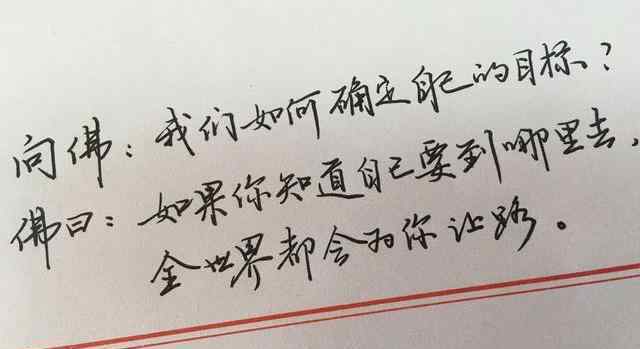 问佛：我们如何确定自己的目标？
佛曰：如果你知道自己要到哪里去，
全世界都会为你让路。